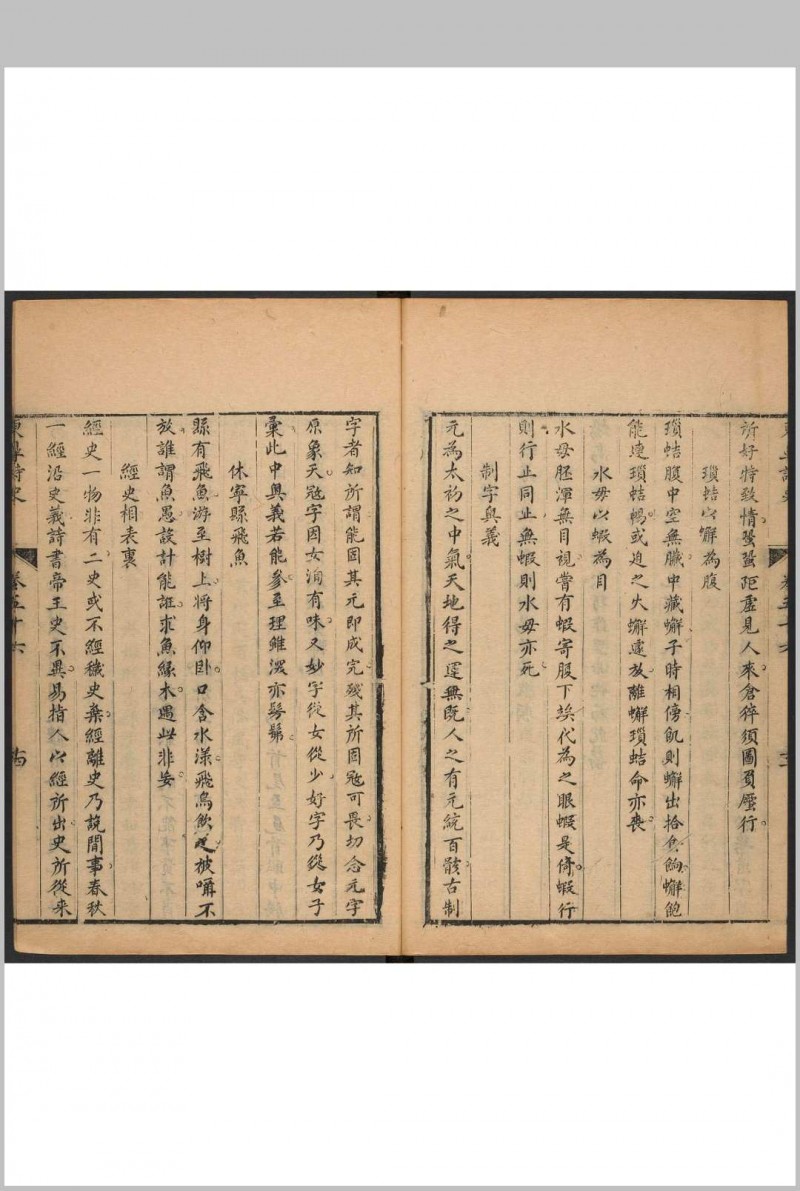 所好特致情蛩蛩距虛見人來倉猝須圖負蹷行
瑣蛣以蠏為腹
瑣蛣腹中空無臟中藏蠏子時相傍飢則蠏出拾食餉蠏飽
能連瑣蛣暢或迫之失蠏遽放離蠏瑣蛣命亦喪
水母以蝦為目
水母胚渾無目視嘗有蝦寄股下挨代為之眼蝦是倚蝦行
則行止同止無蝦則水母亦死
制字奥義
元為太礿之中氣天地得之運無旣人之有元統百骸古制
卷五十六
字者知所謂能固其元即成完殘其所固冦可畏切念元字
原象天冦字因女洵有味又妙字從女從少好字乃從女子
彙此中奥義若能參至理雖淺亦髣髴
休寧縣飛魚
縣有飛魚游至樹上將身仰卧口含水漾飛鳥飲之被嗛不
放誰謂魚愚設計能誑求魚緣木遇此非妄
經史相表裏
經史一物非有二史或不經穢史棄經離史乃說閒事春秋
一經沿史義詩書帝王史不異易指人以經所出史所從来
卷五十六
十四